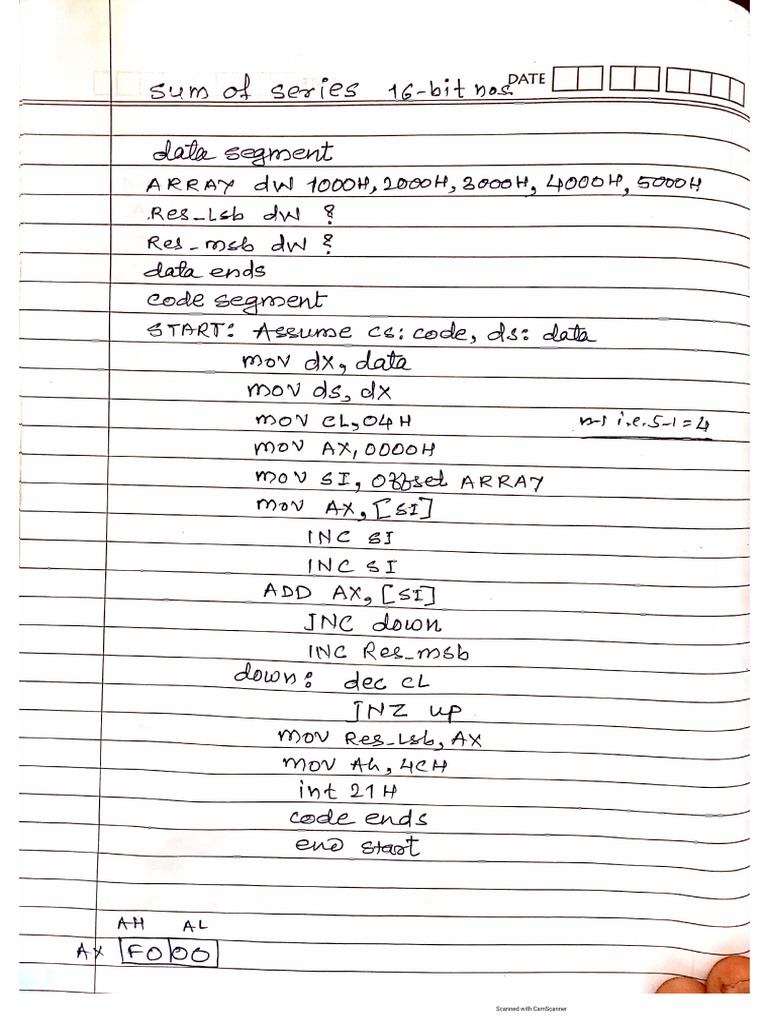 sum of series 16-bit nos. DATE
data segment
ARRAY dw 1000H, 2000H, 3000H, 4000H, 5000H
Res_Lsb dw ?
Res_msb dw ?
data ends
code segment
START: Assume cs: code, ds: data
mov dx, data
mov ds, dx
mov CL, 04H n-1 i.e. 5-1=4
mov AX, 0000H
mov SI, offset ARRAY
mov AX, [SI]
INC SI
INC SI
ADD AX, [SI]
JNC down
INC Res_msb
down: dec CL
JNZ up
mov Res_Lsb, AX
mov Ah, 4CH
int 21H
code ends
end start
AH AL
AX F0 00
Scanned with CamScanner